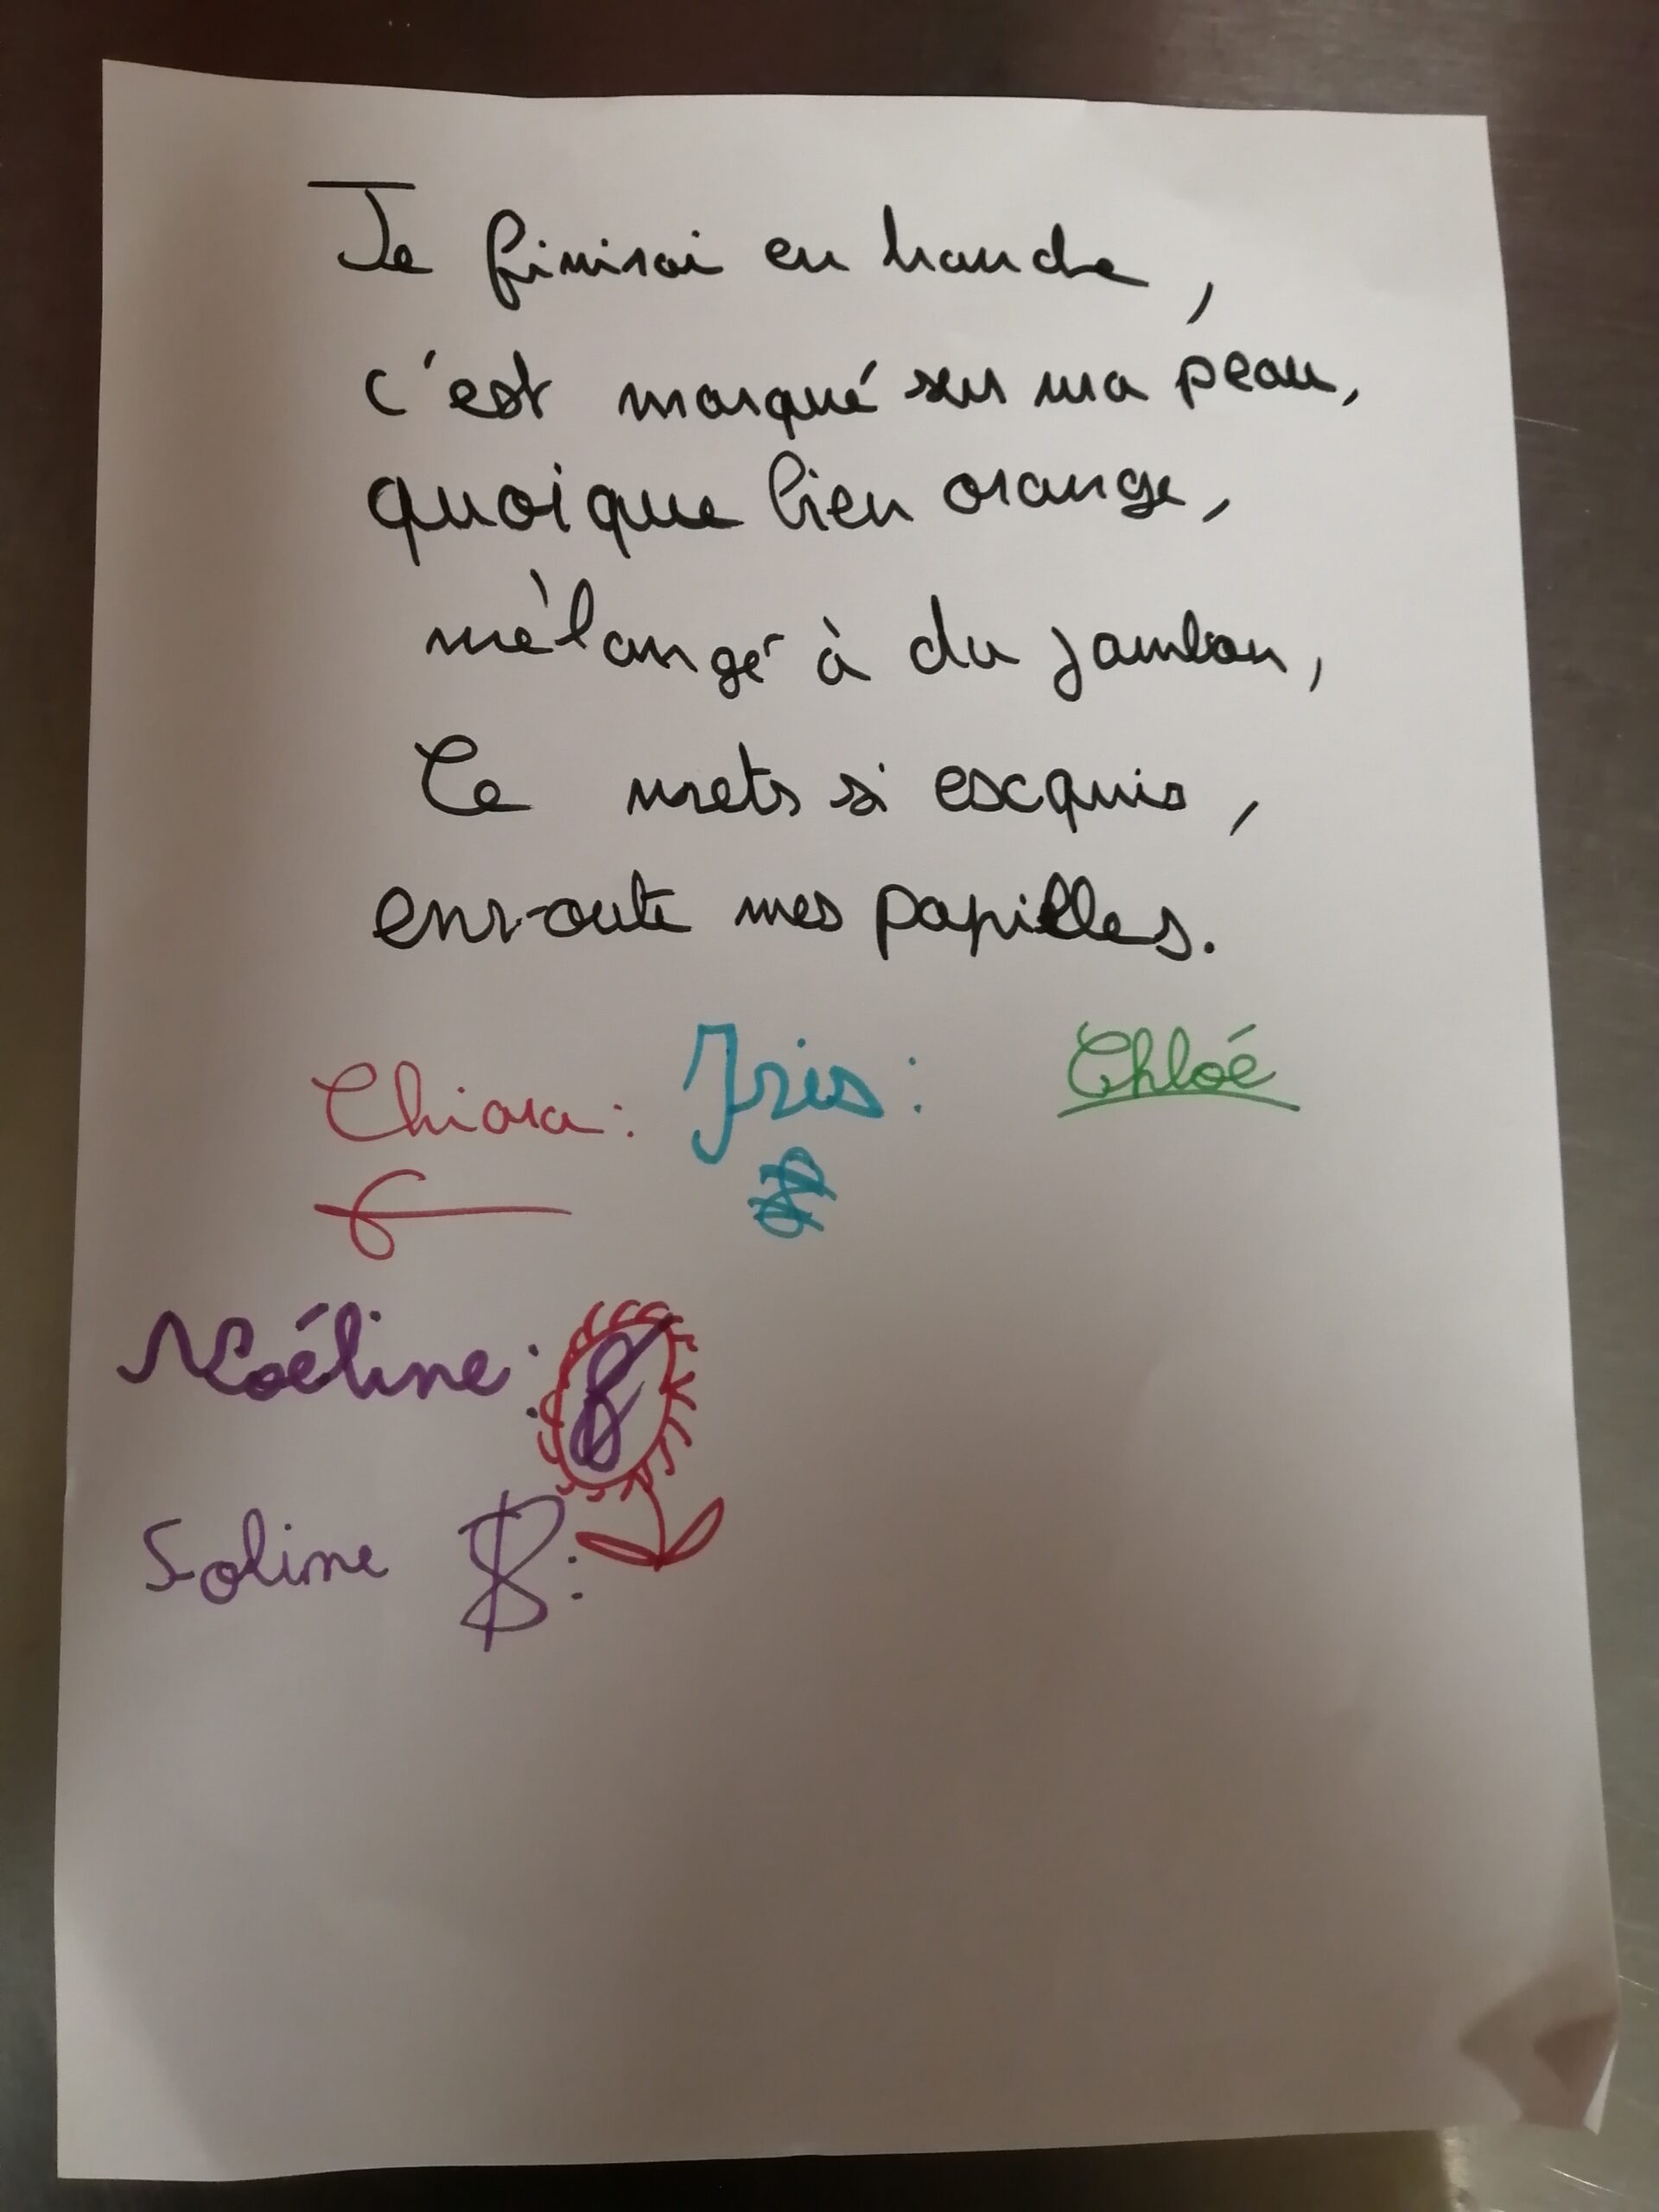 Je finirai en tranche,
c'est marqué sur ma peau,
quoique bien orange,
mèlanger à du jambon,
Ce mets si escquis,
enroute mes papilles.
Chiara: Iris: Chloé
Noéline:
Soline :